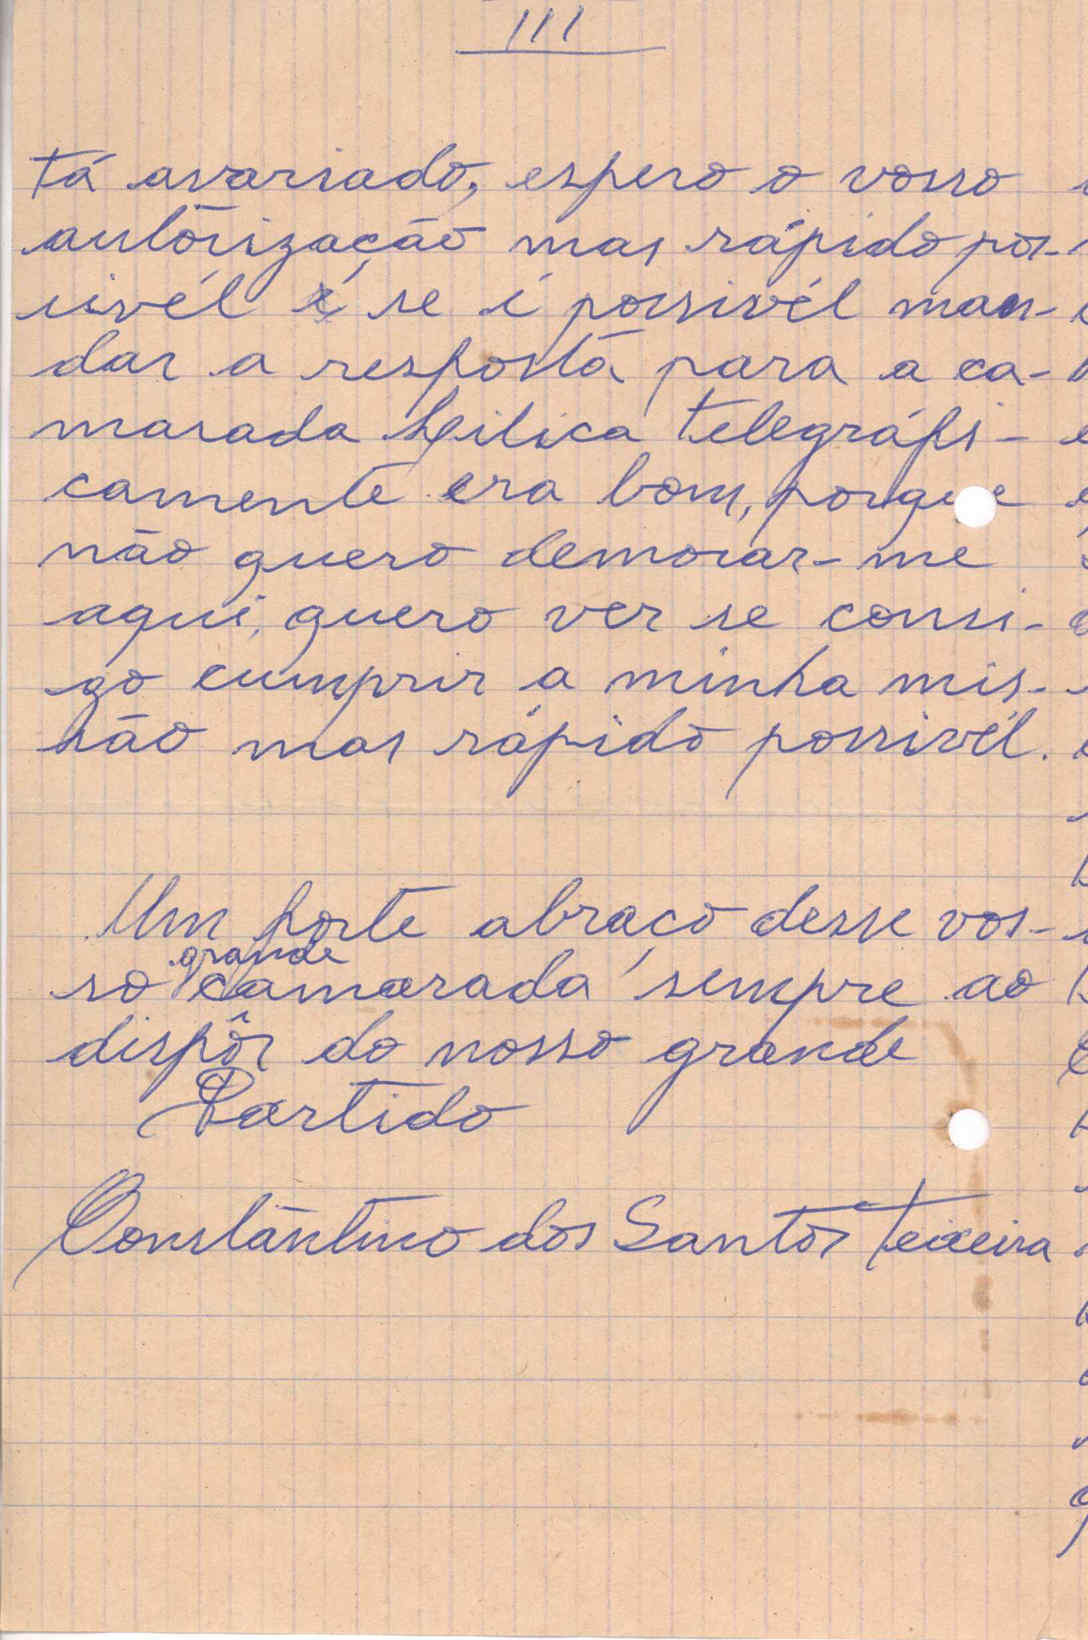 III
tá avariado, espero o vosso
autorização mas rápido pos-
sivél é se é possivél man-
dar a resposta para a ca-
marada Lilica telegráfi-
camente era bom, porque
não quero demorar-me
aqui, quero ver se consi-
go cumprir a minha mis-
são mas rápido possivél.
Um forte abraço desse vos-
grande
so camarada sempre ao
dispôr do nosso grande
Partido
Constantino dos Santos Teixeira